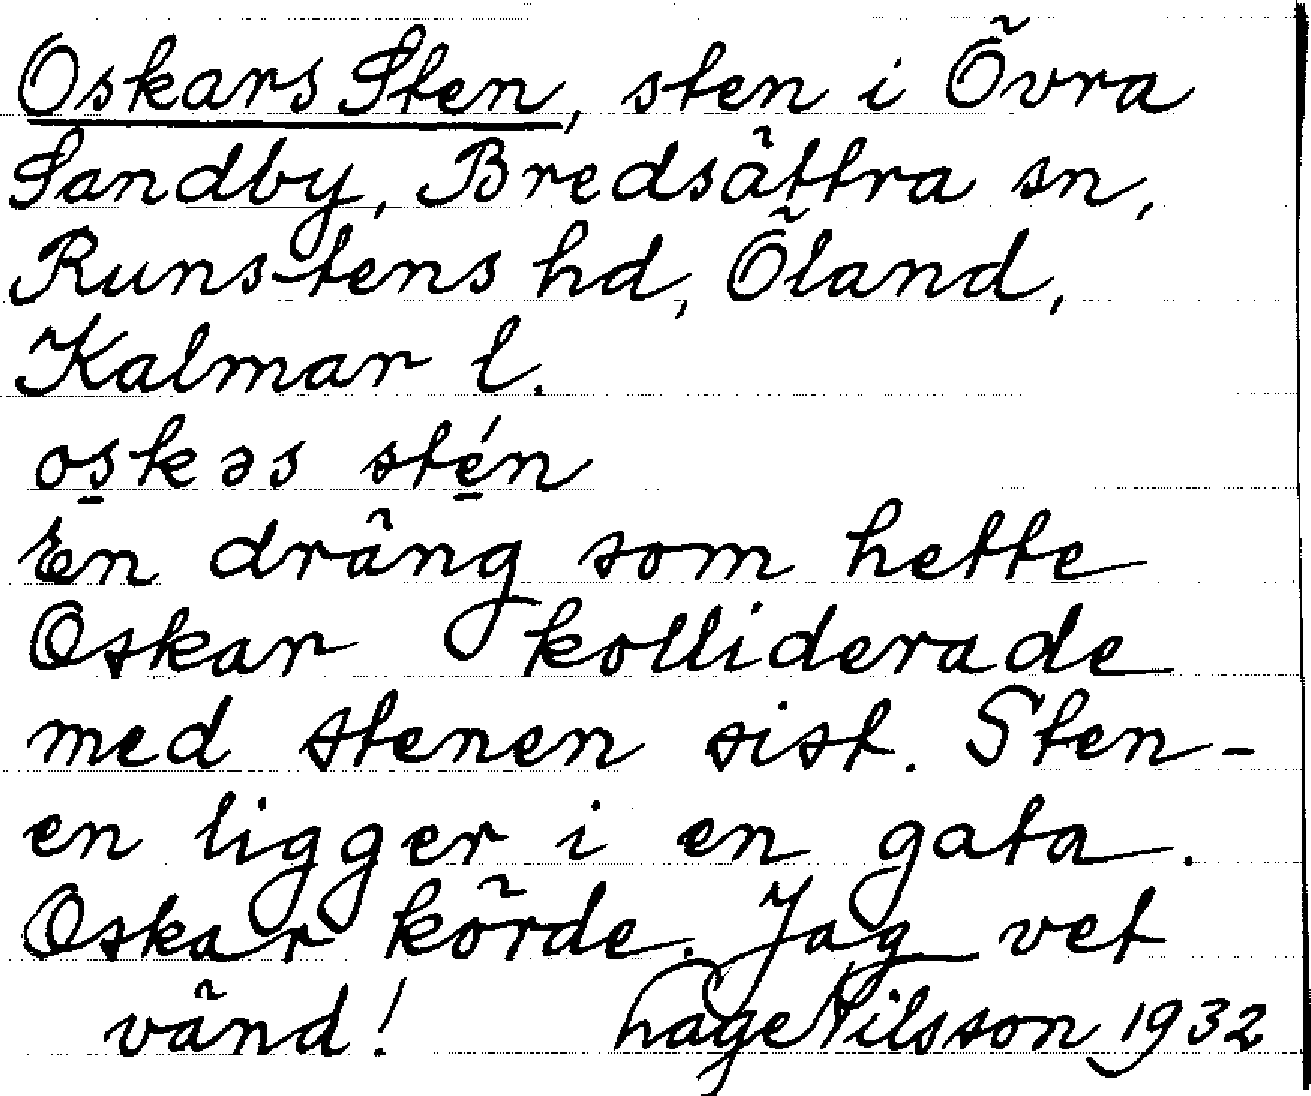 Oskars Sten, sten i Övra
Sandby, Bredsättra sn,
Runstens hd, Öland,
Kalmar l.
os̱kəs sté̱n
En dräng som hette
Oskar kolliderade
med stenen sist. Sten-
en ligger i en gata.
Oskar körde. Jag vet
vänd! Åge Nilsson 1932